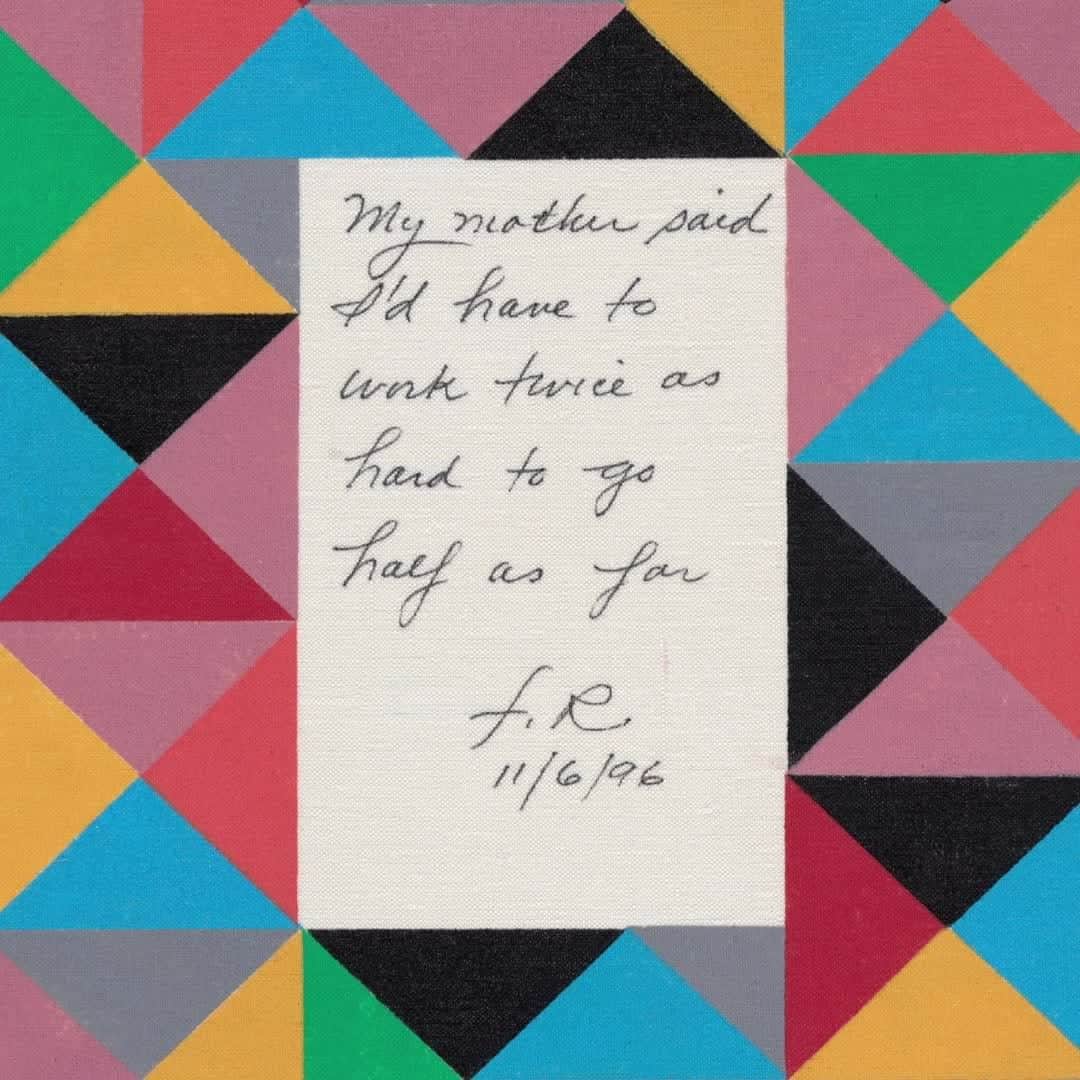 My mother said
I'd have to
work twice as
hard to go
half as far
F.R.
11/6/96